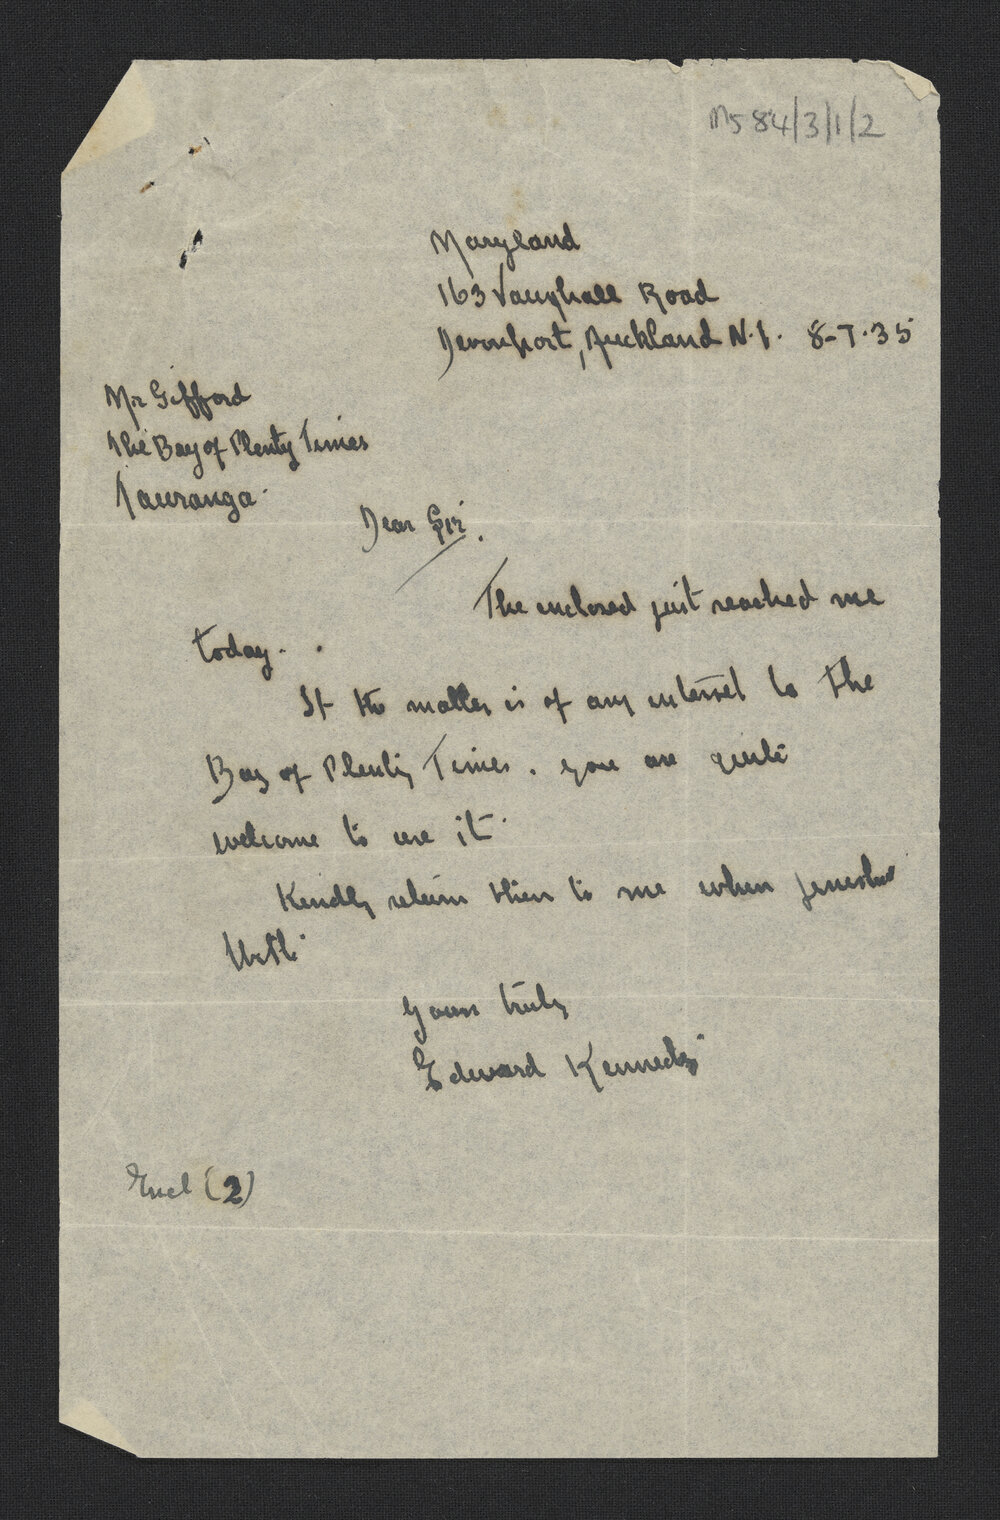 Ms 84/3/1/2
Maryland
163 Vauxhall Road
Devonport, Auckland N.1. 8-7-35
Mr Gifford
The Bay of Plenty Times
Tauranga.
Dear Sir.
The enclosed just reached me
today.
If the matter is of any interest to the
Bay of Plenty Times. you are quite
welcome to use it.
Kindly return them to me when
with.
Yours truly
Edward Kennedy
Encl (2)